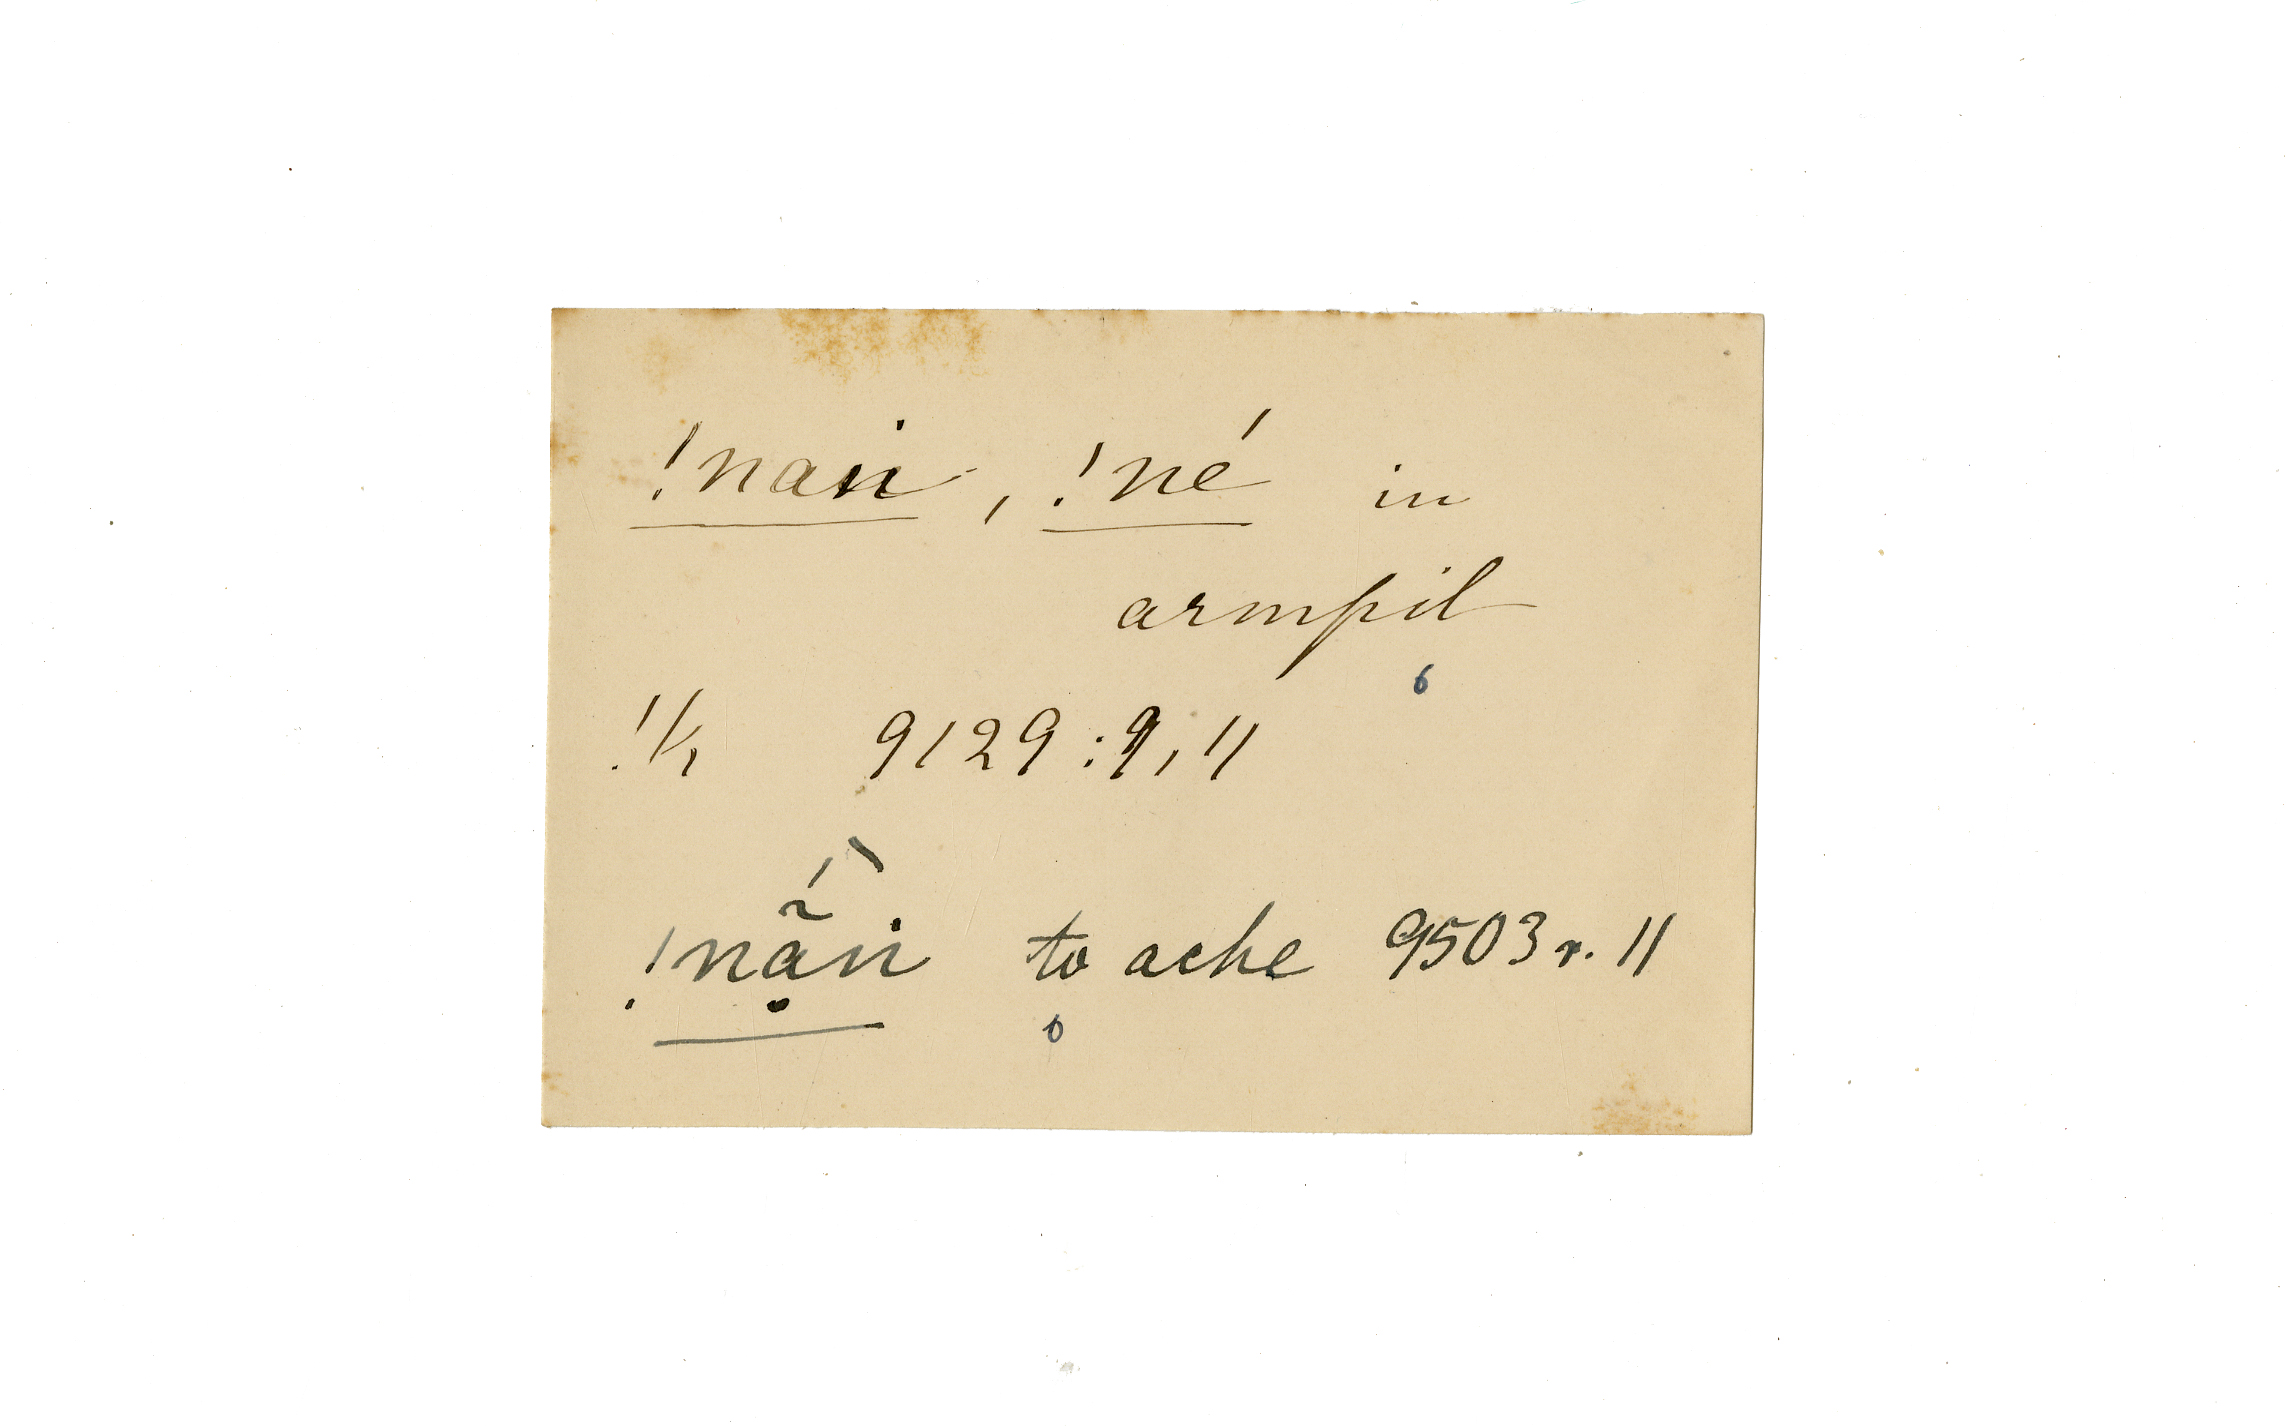 !nań, !né in
armpit
!/₁ 9129 : 9, 11
!nạ̃́ń to ache 9503 r. 11